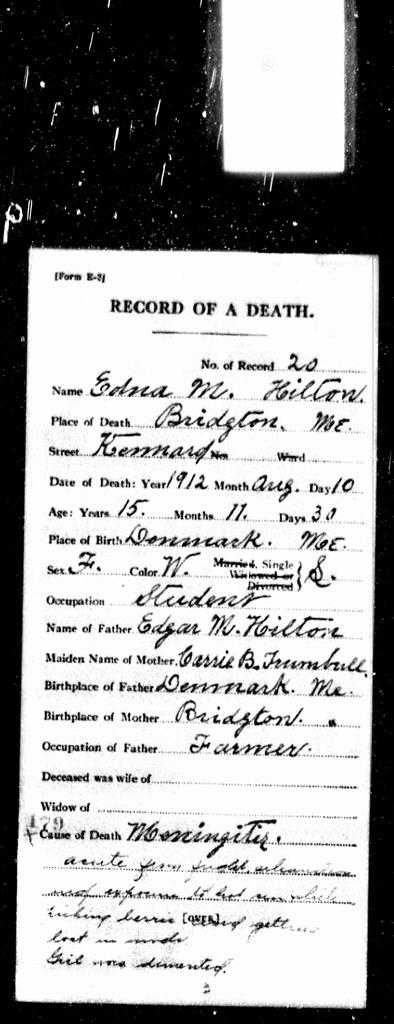 [Form E-2]
RECORD OF A DEATH.
No. of Record 20
Name Edna M. Hilton.
Place of Death Bridgton. Me.
Street Kennard No. Ward
Date of Death: Year 1912 Month Aug. Day 10
Age: Years 15. Months 11. Days 30
Place of Birth Denmark. Me.
Sex F. Color W. Married, Single Widowed or Divorced } S.
Occupation Student
Name of Father Edgar M. Hilton
Maiden Name of Mother Carrie B. Trumbull.
Birthplace of Father Denmark. Me.
Birthplace of Mother Bridgton. "
Occupation of Father Farmer.
Deceased was wife of
Widow of
179
Cause of Death Meningitis.
acute from
and exposure to hot sun while
picking berries [OVER] and getting
lost in woods
Girl was demented.